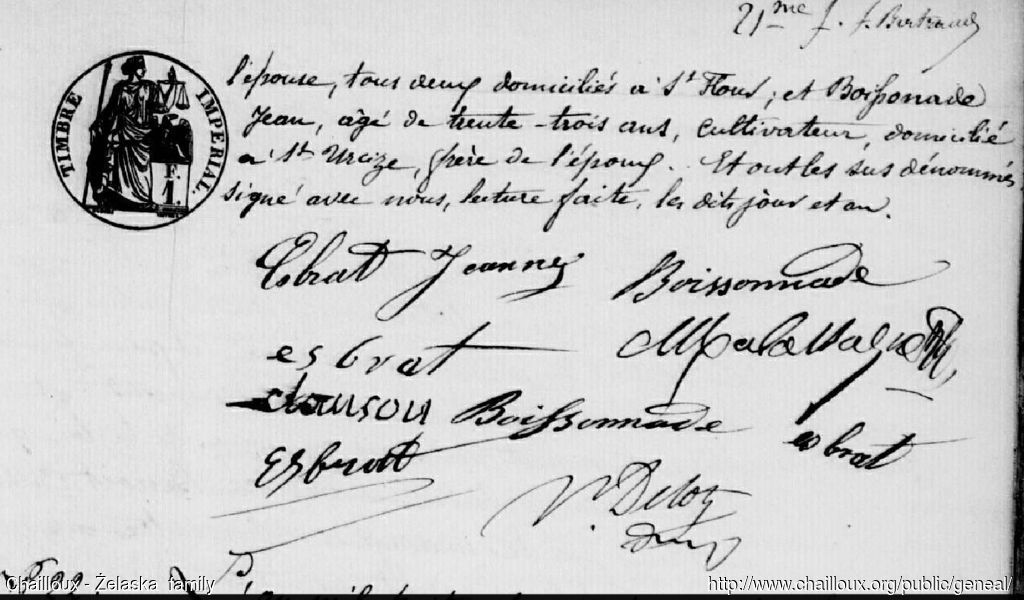 21me f. f. Bertrand
TIMBRE IMPERIAL.
l'épouse, tous deux domiciliés à St Flour; et Boissonade
Jean, âgé de trente-trois ans, cultivateur, domicilié
à St Urcize, frère de l'époux. Et ont les sus dénommés
signé avec nous, lecture faite, les dits jour et an.
Esbrat Jeanne Boissonnade
esbrat
chauson Boissonnade esbrat
Esbrat
Chailloux - Żelaska family
http://www.chailloux.org/public/geneal/